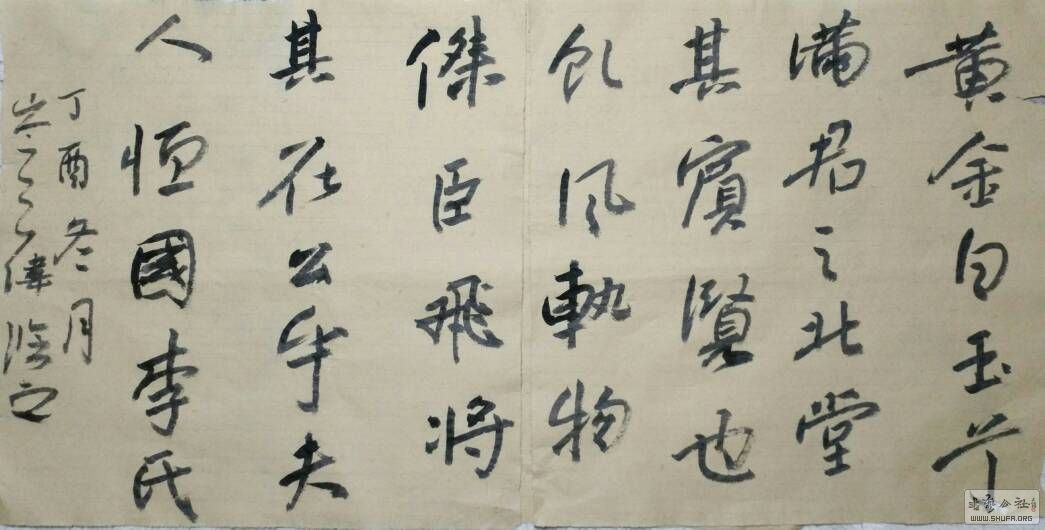 黄金白玉
滿君之北堂
其賓賢也
風執物
傑臣飛將
其在公乎夫
人恒國李氏
丁酉冬月
偉臨之
北海公社
WWW.SHUFA.ORG